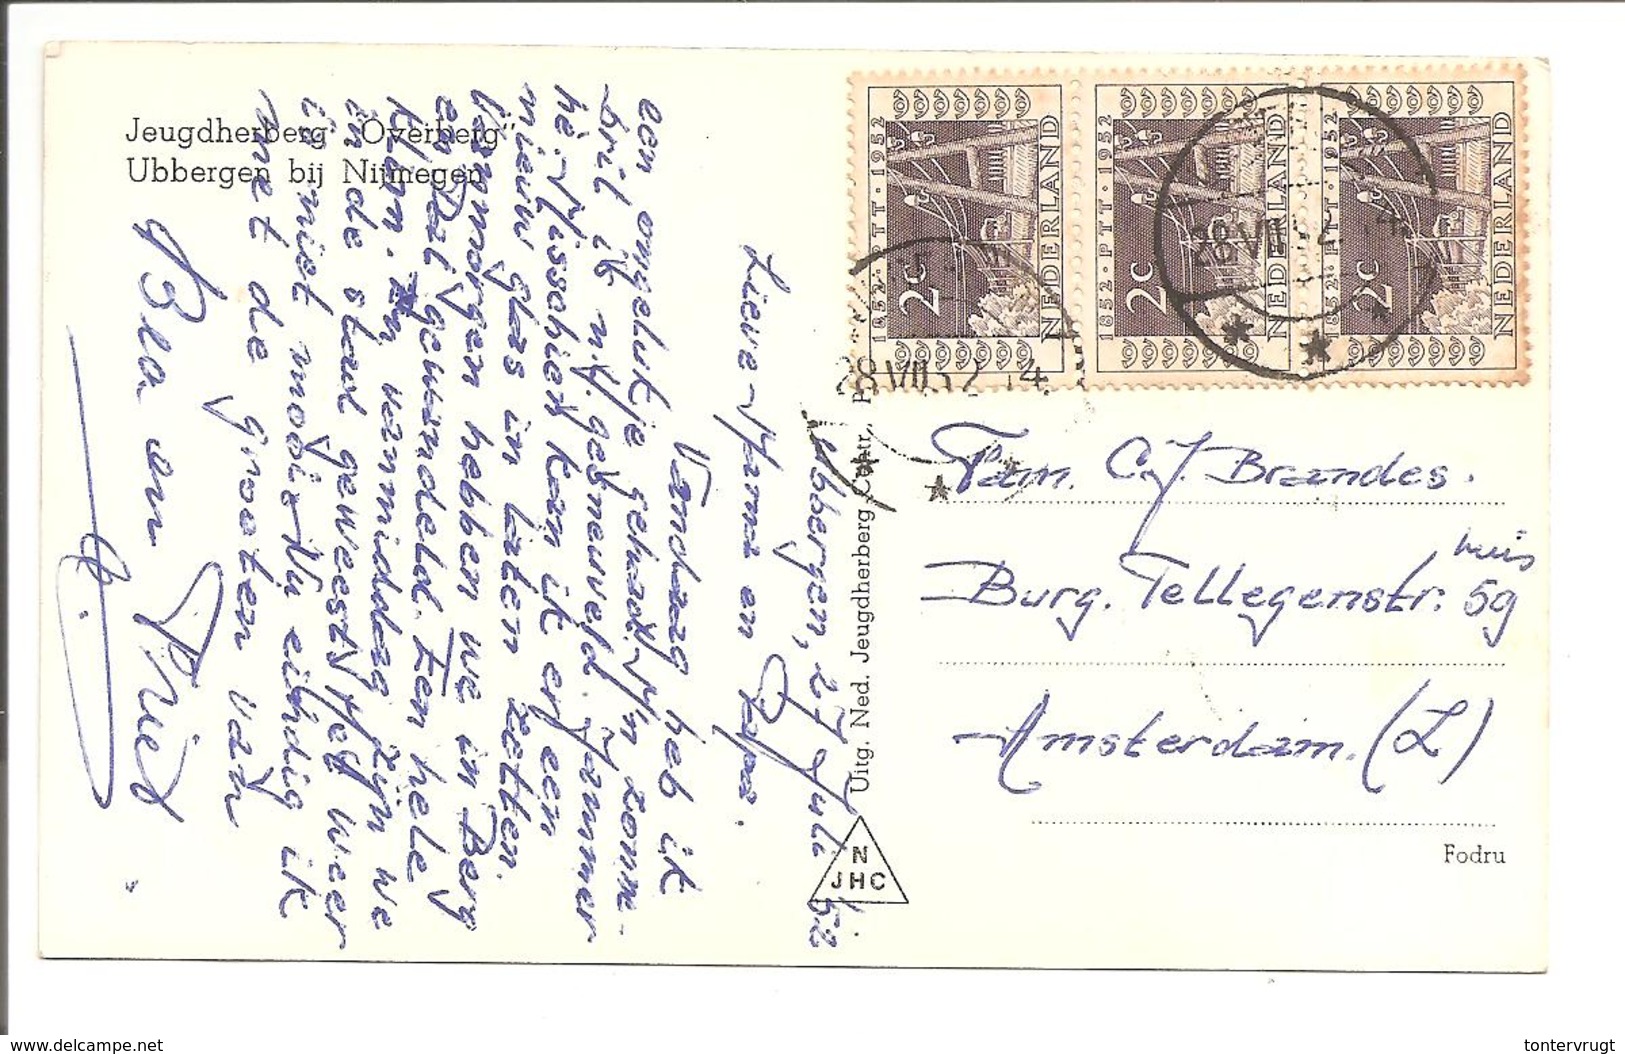 Jeugdherberg "Overberg"
Ubbergen bij Nijmegen
Ubbergen, 27 Juli '52
Lieve Mama en Papa.
Vandaag heb ik
een ongelukje gehad. M'n zonne-
bril is n.l. gesneuveld. Jammer
hè. Misschien kan ik er een
nieuw glas in laten zetten.
Vanmorgen hebben we in Berg
en Dal gewandeld. Een hele
klom. En vanmiddag zijn we
in de stad geweest. Het weer
is niet mooi. Nu eindig ik
met de groeten van
Bea en Riet
Uitg. Ned. Jeugdherberg Contr.,
N
JHC
1852 · PTT · 1952
2c
NEDERLAND
1852 · PTT · 1952
2c
NEDERLAND
1852 · PTT · 1952
2c
NEDERLAND
28 VII 52 14
28 VII 52 14
Fam. C.J. Brandes.
Burg. Tellegenstr. 59
huis
Amsterdam. (Z)
Fodru
ebay.com
tontervrugt